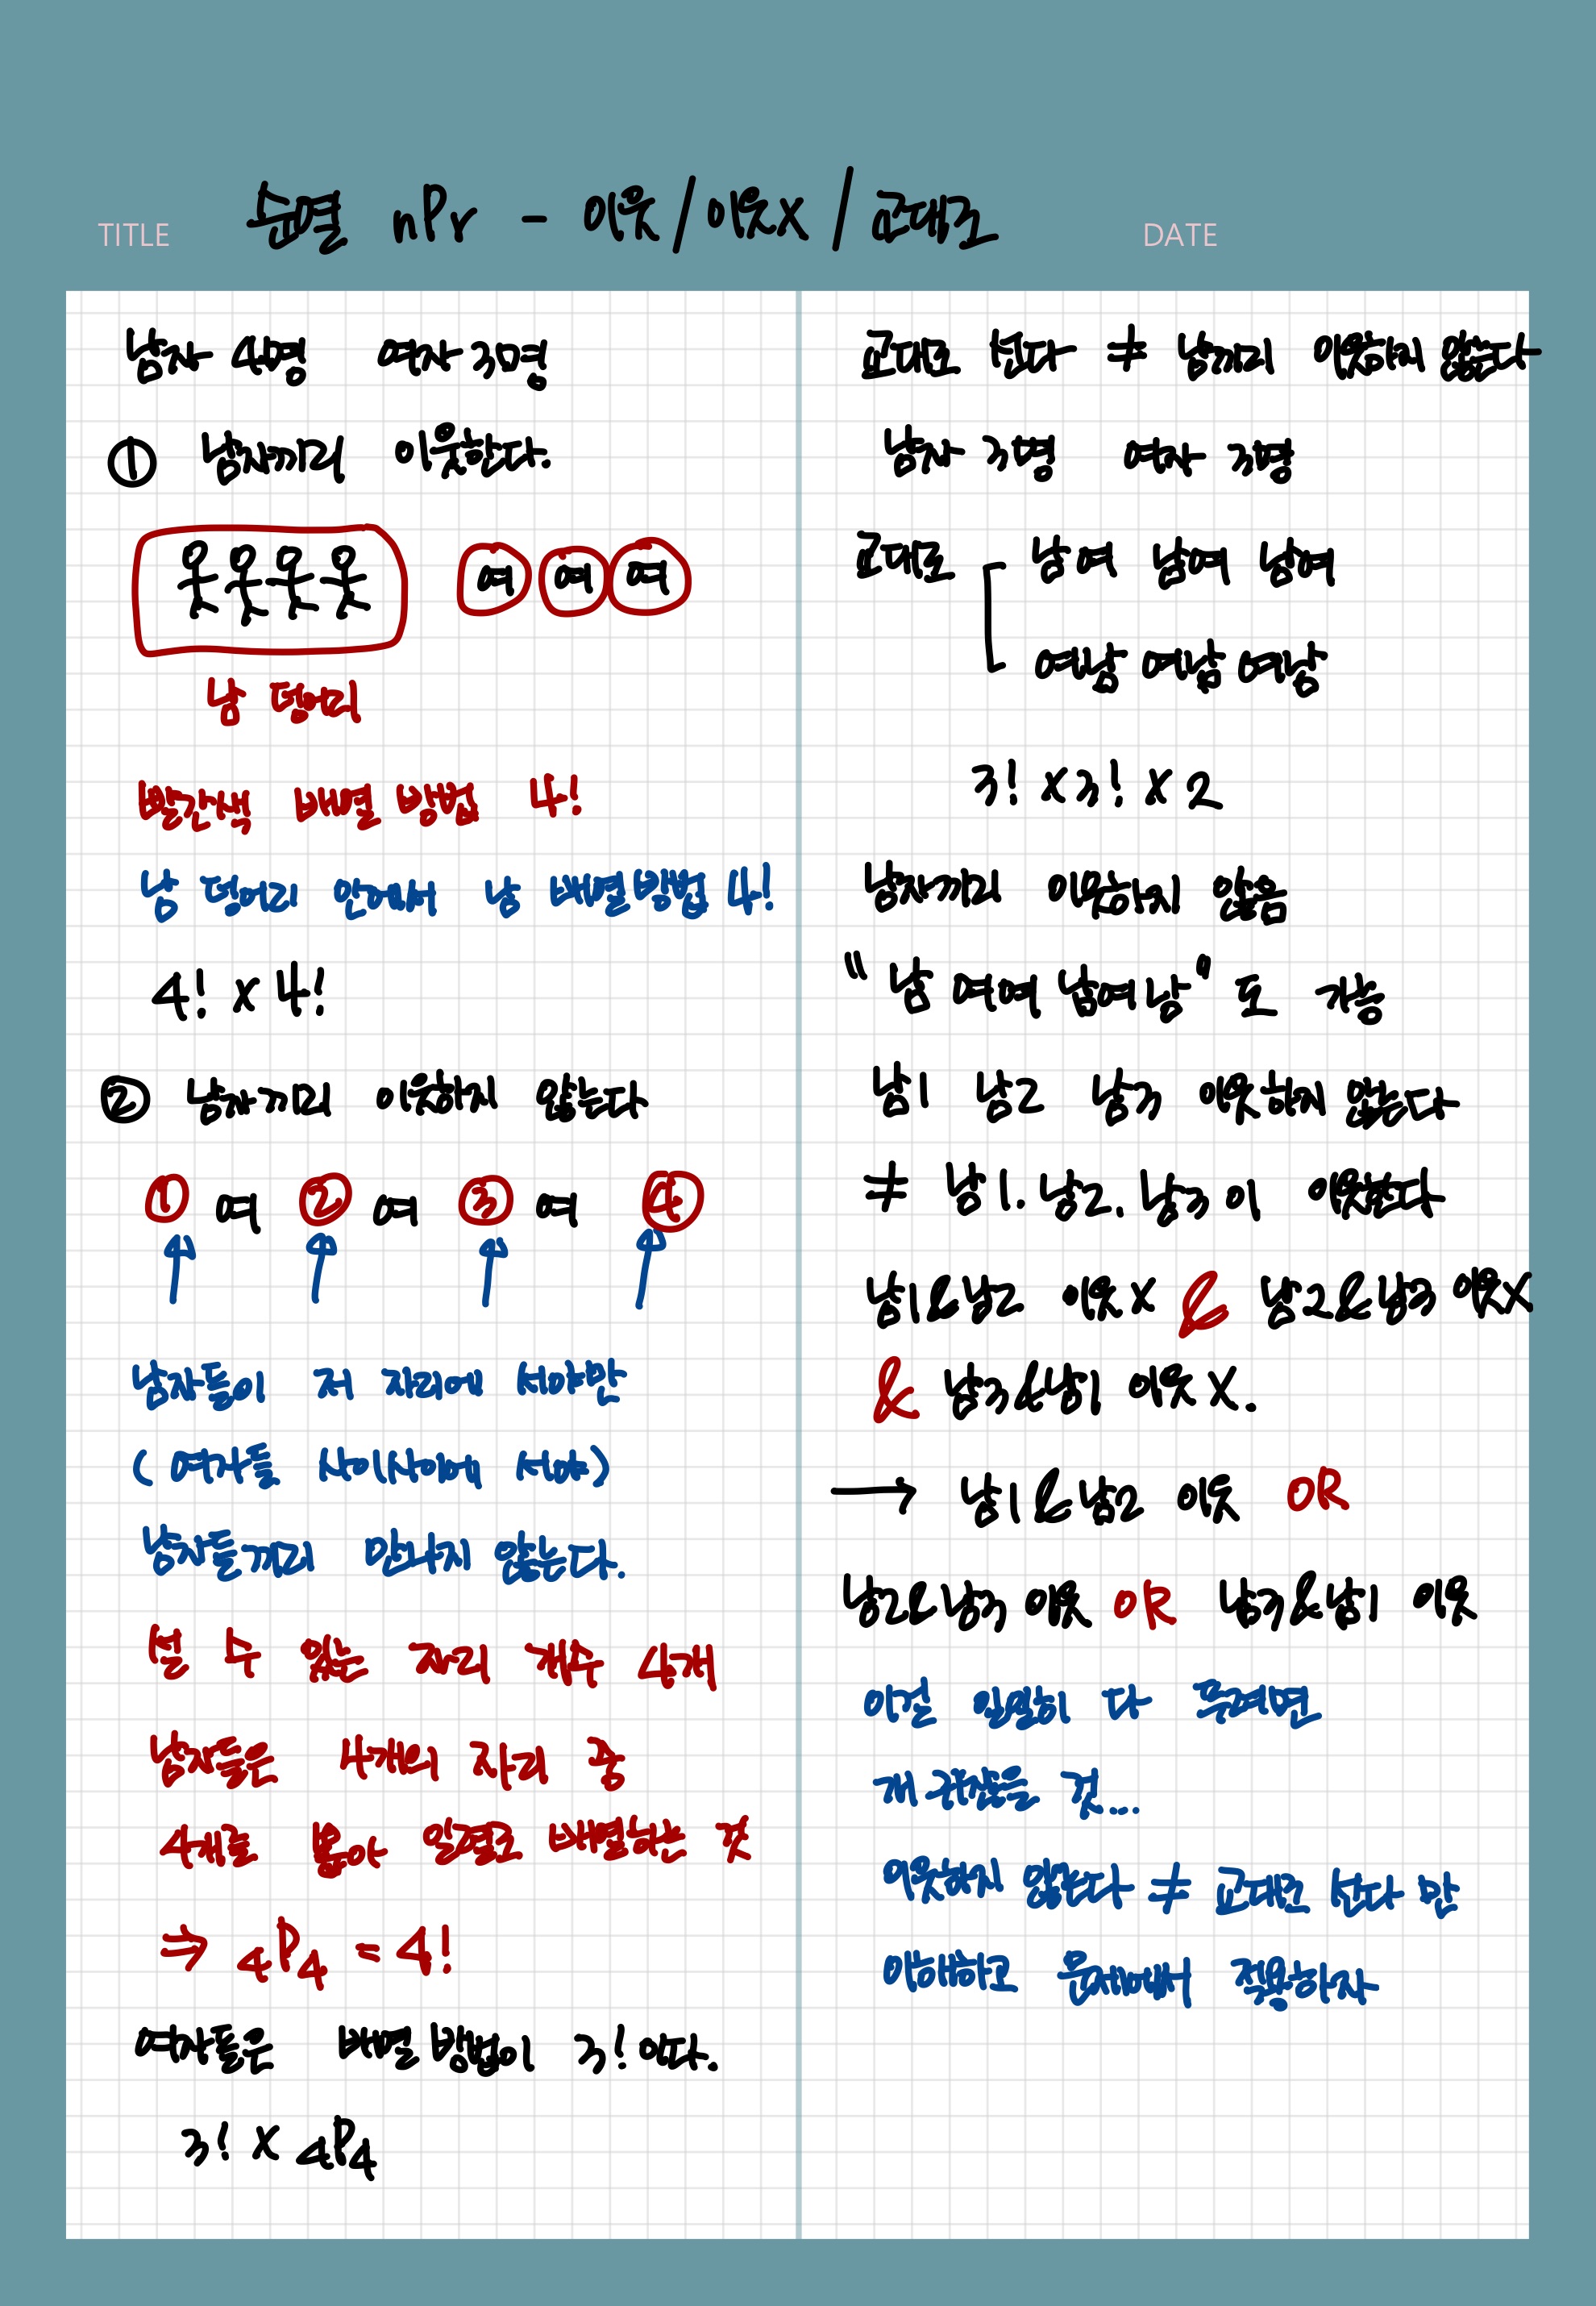 TITLE 순열 nPr - 이웃/이웃X/교대로 DATE
남자 4명 여자 3명
① 남자끼리 이웃한다.
여 여 여
남 덩어리
빨간색 배열 방법 4!
남 덩어리 안에서 남 배열방법 4!
4! X 4!
② 남자끼리 이웃하지 않는다
① 여 ② 여 ③ 여 ④
남자들이 저 자리에 서야만
(여자들 사이사이에 서야)
남자들끼리 만나지 않는다.
설 수 있는 자리 개수 4개
남자들은 4개의 자리 중
4개를 뽑아 일렬로 배열하는 것
⇒ 4P4 = 4!
여자들은 배열 방법이 3!이다.
3! X 4P4
교대로 선다 ≠ 남끼리 이웃하지 않는다
남자 3명 여자 3명
교대로 남여 남여 남여
여남 여남 여남
3! X 3! X 2
남자끼리 이웃하지 않음
"남 여여 남여남"도 가능
남1 남2 남3 이웃하지 않는다
≠ 남1. 남2. 남3이 이웃한다
남1&남2 이웃X & 남2&남3 이웃X
& 남3&남1 이웃X.
→ 남1&남2 이웃 OR
남2&남3 이웃 OR 남3&남1 이웃
이걸 일일히 다 푸려면
개 귀찮을 것...
이웃하지 않는다 ≠ 교대로 선다 만
이해하고 문제에서 적용하자